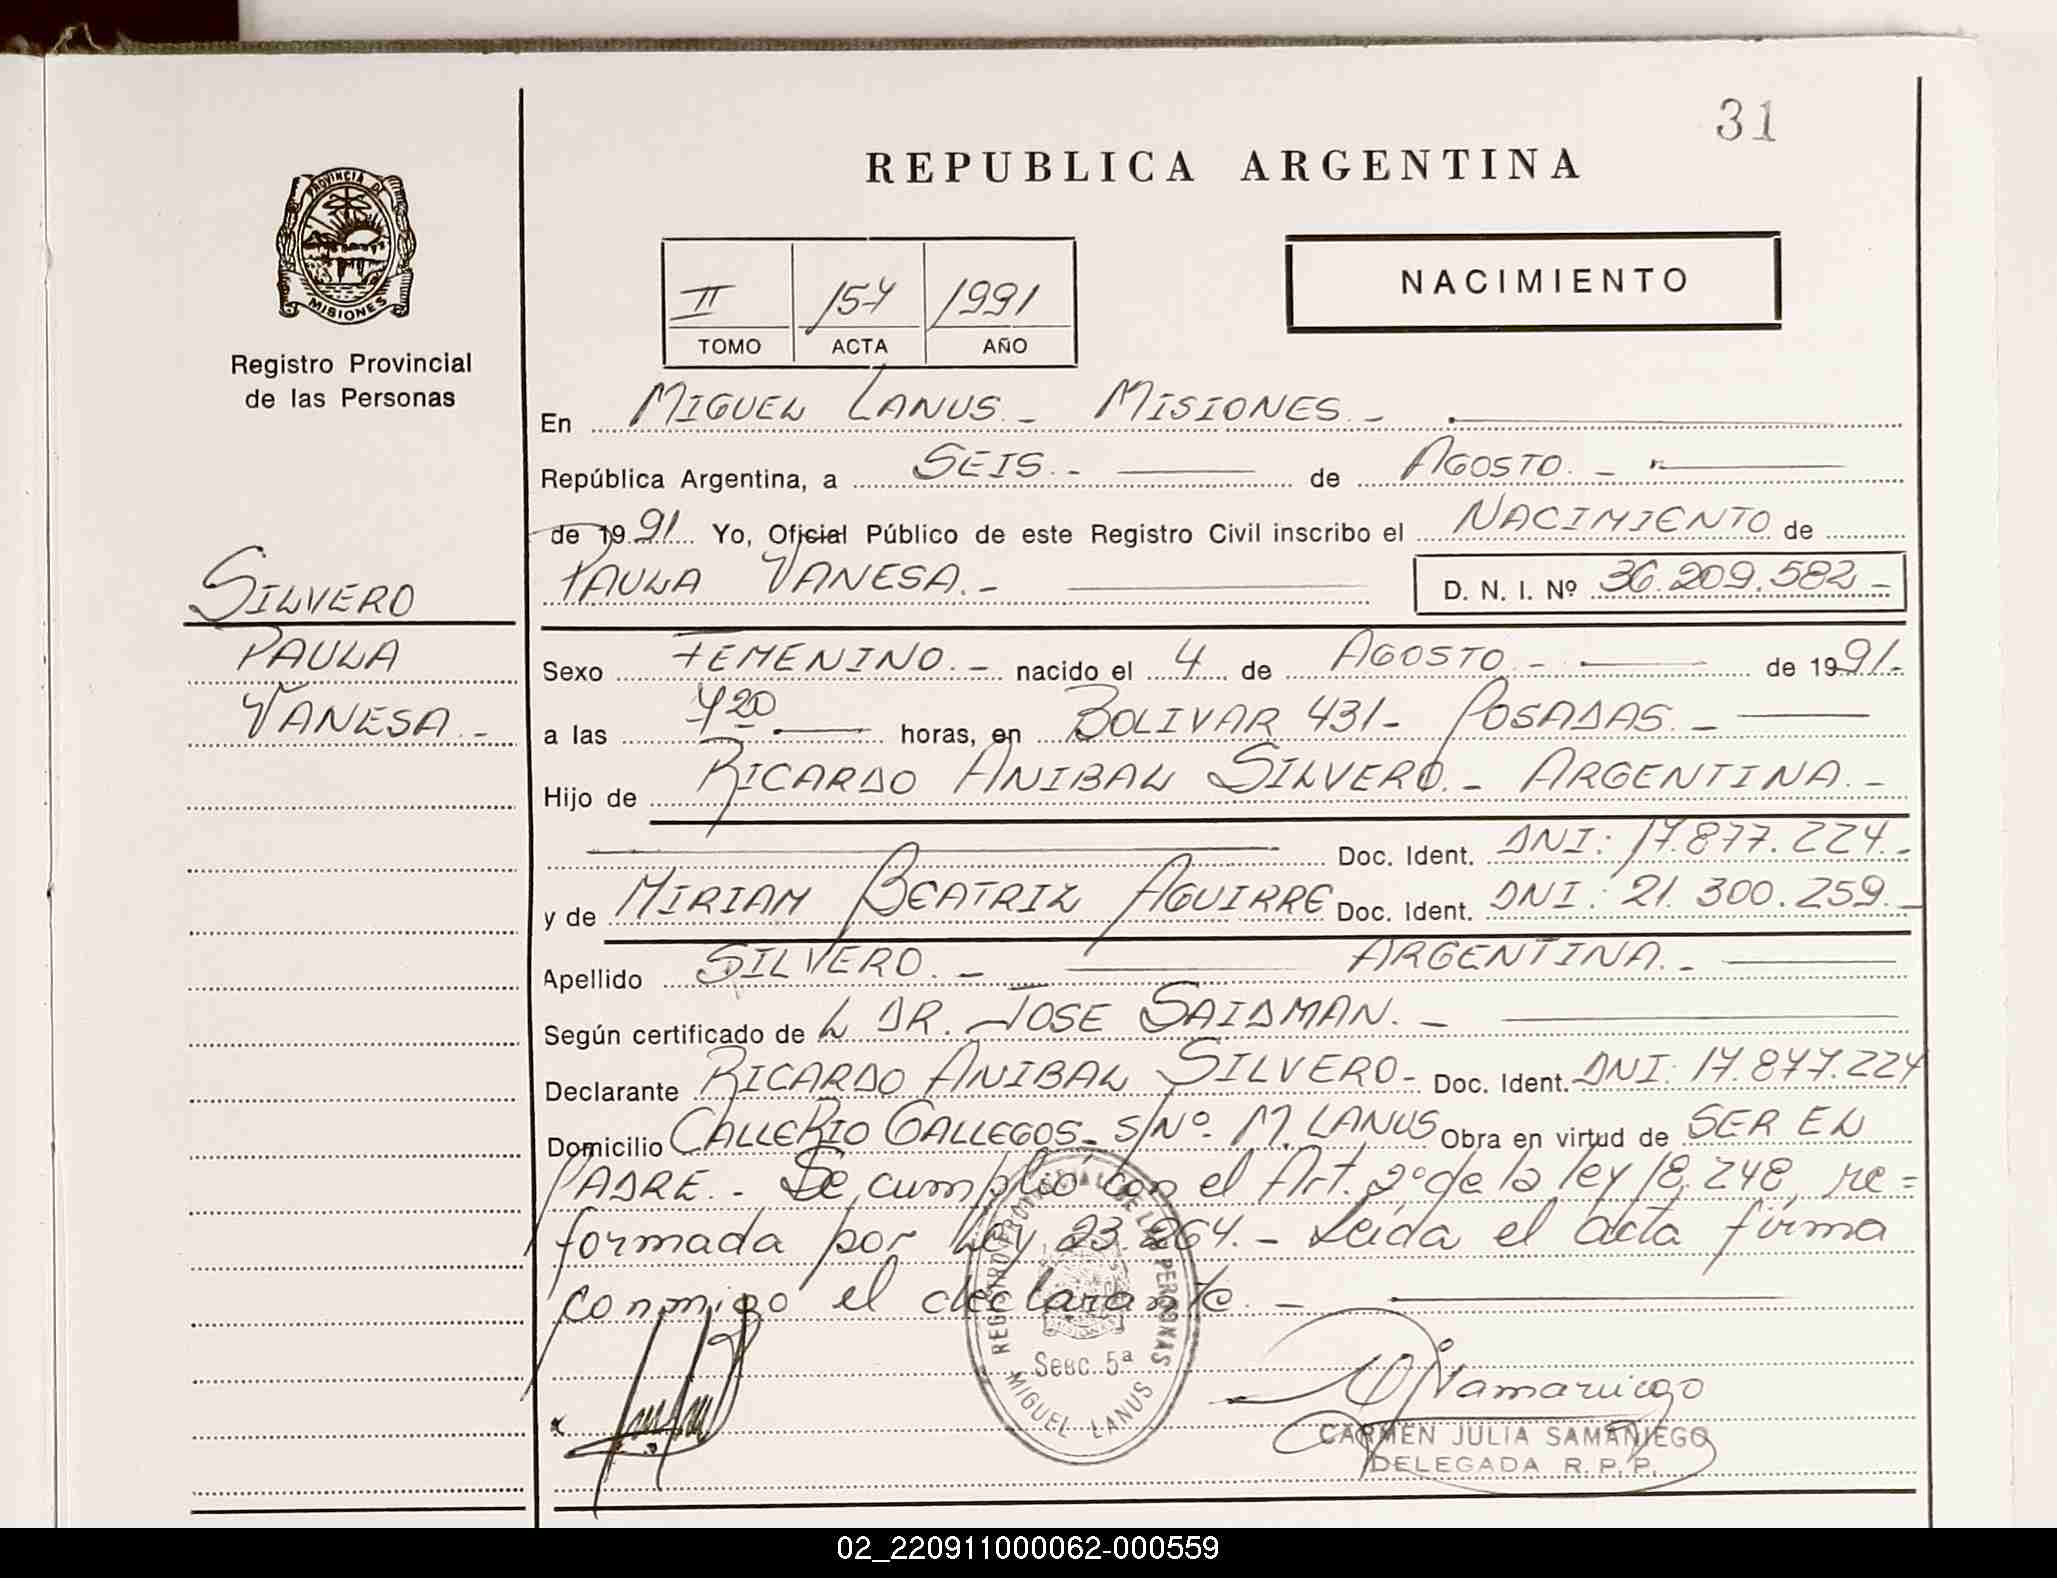 31
REPUBLICA ARGENTINA
PROVINCIA DE
MISIONES
Registro Provincial
de las Personas
II 157 1991
TOMO ACTA AÑO
NACIMIENTO
En MIGUEL LANUS.- MISIONES.-
República Argentina, a SEIS.- de AGOSTO.-
de 1991 Yo, Oficial Público de este Registro Civil inscribo el NACIMIENTO de
PAULA VANESA.- D. N. I. Nº 36.209.582-
SILVERO
PAULA
VANESA.-
Sexo FEMENINO.- nacido el 4 de AGOSTO.- de 1991.-
a las 7 20 horas, en BOLIVAR 431- POSADAS.-
Hijo de RICARDO ANIBAL SILVERO.- ARGENTINA.-
Doc. Ident. DNI: 17.877.224.-
y de MIRIAM BEATRIZ AGUIRRE Doc. Ident. DNI: 21.300.259.-
Apellido SILVERO.- ARGENTINA.-
Según certificado de L DR. JOSE SAIDMAN.-
Declarante RICARDO ANIBAL SILVERO- Doc. Ident. DNI: 17.877.224
Domicilio CALLE RIO GALLEGOS- S/Nº- M. LANUS Obra en virtud de SER EL
PADRE.- Se cumplió con el Art. 2º de la ley 18.248, re=
formada por Ley 23.264.- Leida el acta firma
conmigo el declarante.-
REGISTRO PROVINCIAL DE LAS PERSONAS
MISIONES
Secc. 5ª
MIGUEL LANUS
CARMEN JULIA SAMANIEGO
DELEGADA R.P.P.
02_220911000062-000559